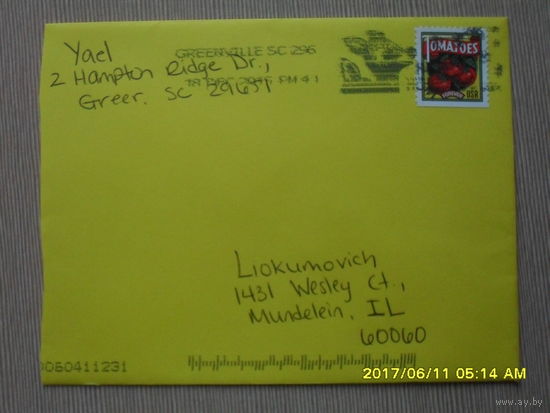 Yael
2 Hampton Ridge Dr.,
Greer, SC 29651
GREENVILLE SC 296
PM 4 L
TOMATOES
FOREVER
USA
Liokumovich
1431 Wesley Ct.,
Mundelein, IL
60060
0060411231
2017/06/11 05:14 AM
www.ay.by